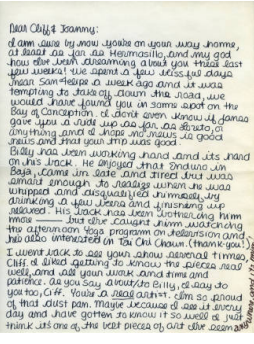 Dear Cliff & Joanny:
I am sure by now you're on your way home,
at least as far as Hermosillo, and my god
how I've been dreaming about you these last
few weeks! We spent a few blissful days
near San Felipe a week ago and it was
tempting to take off down the road, we
would have found you in some spot on the
Bay of Conception. I don't even know if James
gave you a ride up as far as Loreto, or
anything, and I hope no news is good
news and that your trip was good.
Billy has been working hard and its hard
on his back. He enjoyed that Enduro in
Baja, came in late and tired but was
smart enough to realize when he was
whipped and disqualified himself by
drinking a few beers and finishing up
relaxed. His back has been bothering him
more — but I've caught him watching
the afternoon Yoga program on television and
he's also interested in Tai Chi Chuan. (thank you!)
I went back to see your show several times,
Cliff. I liked getting to know the pieces real
well, and all your work and time and
patience. As you say about/to Billy, I say to
you too, Cliff. You're a real artist. I'm so proud
of that dust pan. Maybe because I see it every
day and have gotten to know it so well I just
think it's one of the best pieces of art I've seen